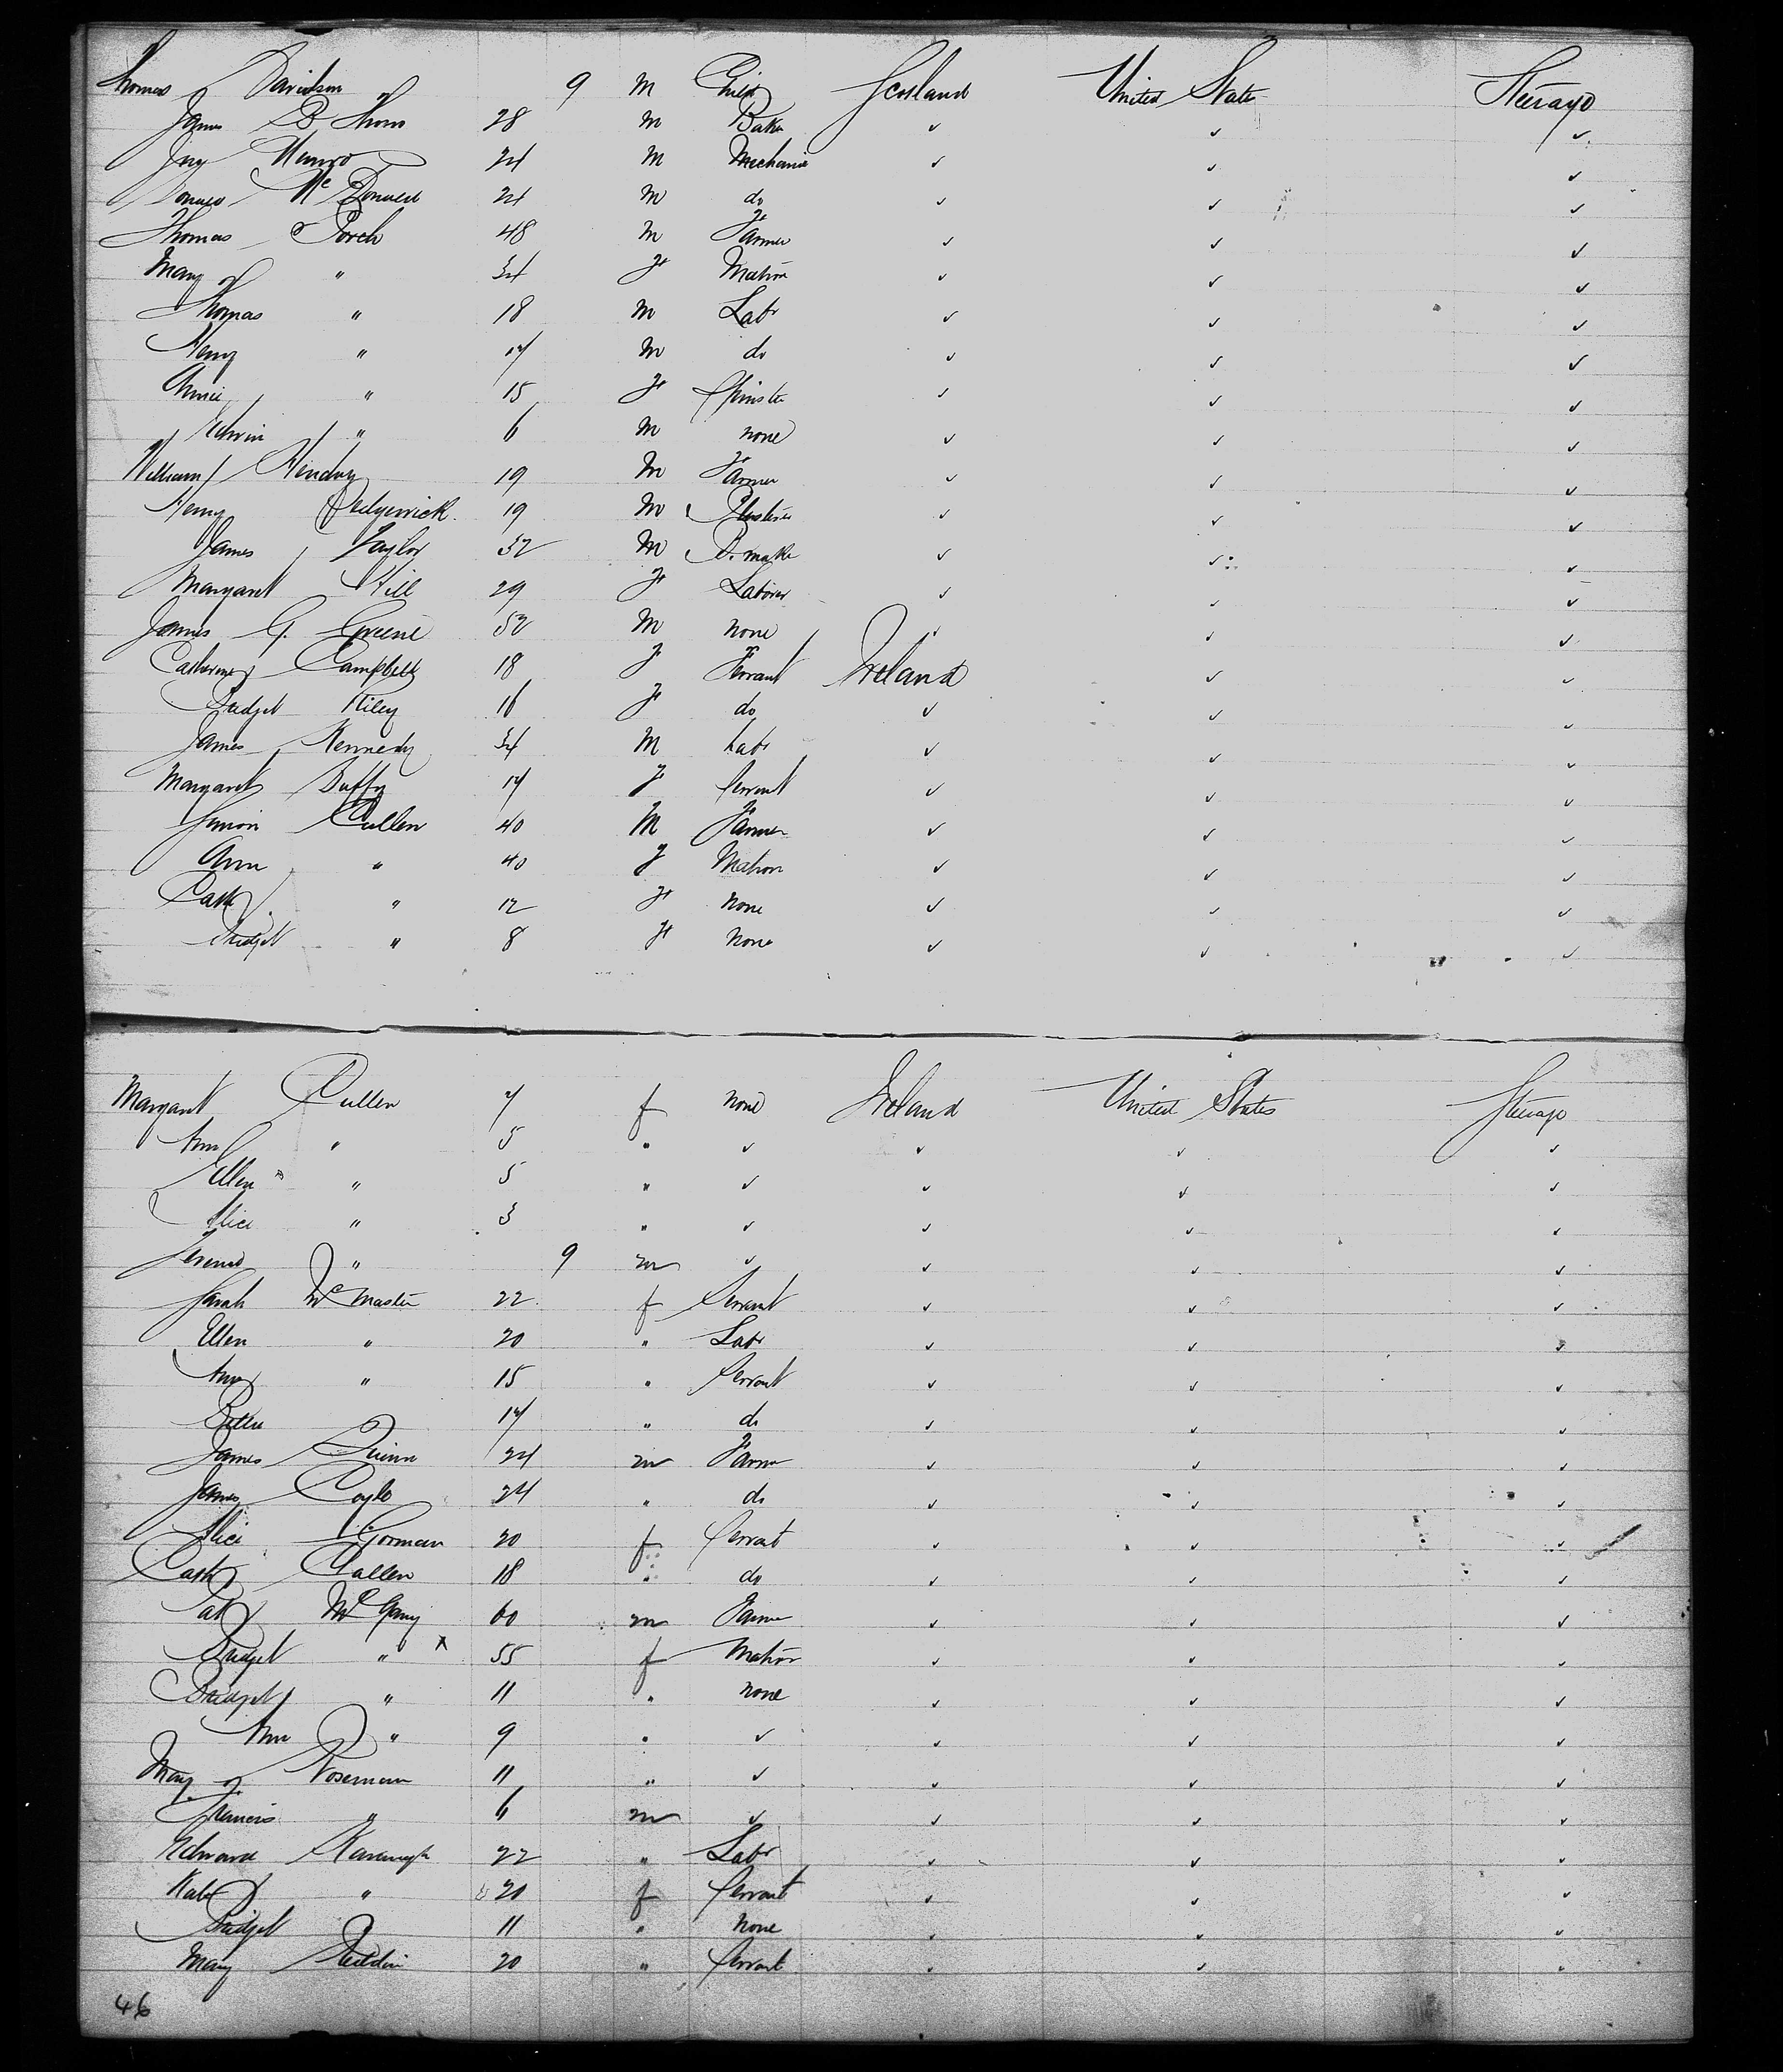 Thomas Davidson 9 m Child Scotland United States Steerage
James B Thoms 28 m Baker ✓ ✓ ✓
Munro 24 m Mechanic ✓ ✓ ✓
Donald McDonald 24 m do ✓ ✓ ✓
Thomas Porch 48 m Farmer ✓ ✓ ✓
Mary " 34 F Matron ✓ ✓ ✓
Thomas " 18 m Labr ✓ ✓ ✓
Henry " 17 m do ✓ ✓ ✓
Annie " 15 F Spinster ✓ ✓ ✓
Edwin " 6 m none ✓ ✓ ✓
William Hendry 19 m Farmer ✓ ✓ ✓
Henry Sedgewick 19 m ✓ ✓ ✓
James Taylor 32 m B. maker ✓ ✓ ✓
Margaret Hill 29 F Laborer ✓ ✓ ✓
James G. Greene 52 m none ✓ ✓ ✓
Catherine Campbell 18 F Servant Ireland ✓ ✓
Bridget Riley 16 F do ✓ ✓ ✓
James Kennedy 34 M Labr ✓ ✓ ✓
Margaret Duffy 17 F Servant ✓ ✓ ✓
Simon Cullen 40 M Farmer ✓ ✓ ✓
Ann " 40 F Matron ✓ ✓ ✓
Cath " 12 F none ✓ ✓ ✓
Bridget " 8 F none ✓ ✓ ✓
Margaret Cullen 7 f none Ireland United States Steerage
Ann " 5 " ✓ ✓ ✓ ✓
Ellen " 5 " ✓ ✓ ✓ ✓
Alice " 3 " ✓ ✓ ✓ ✓
" 9 m ✓ ✓ ✓ ✓
Sarah McMaster 22 f Servant ✓ ✓ ✓
Ellen " 20 " Labr ✓ ✓ ✓
Ann " 15 " Servant ✓ ✓ ✓
17 " do ✓ ✓ ✓
James Quinn 24 m Farmr ✓ ✓ ✓
James Coyle 24 " do ✓ ✓ ✓
Alice Gorman 20 f Servant ✓ ✓ ✓
Cath Callen 18 " do ✓ ✓ ✓
Pat 60 m Farmer ✓ ✓ ✓
Bridget " x 55 f Matron ✓ ✓ ✓
Bridget " 11 " none ✓ ✓ ✓
Ann " 9 " ✓ ✓ ✓ ✓
Mary 11 " ✓ ✓ ✓ ✓
Francis " 6 m ✓ ✓ ✓ ✓
Edward Kavanagh 22 " Labr ✓ ✓ ✓
Kate " 20 f Servant ✓ ✓ ✓
Bridget 11 " none ✓ ✓ ✓
Mary 20 " Servant ✓ ✓ ✓
46